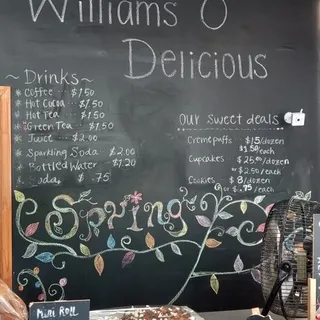 Williams O
Delicious
~ Drinks ~
* Coffee ... $1.50
* Hot Cocoa .. $1.50
* Hot Tea ... $1.50
* Green Tea ... $1.50
* Juice ... $2.00
* Sparkling Soda $2.00
* Bottled Water $1.20
* Soda $ .75
Our sweet deals
Creme puffs $15/dozen
$1.50/each
Cupcakes $25.00/dozen
or $2.50/each
Cookies $8/dozen
or $.75/each
Spring
Mini Roll